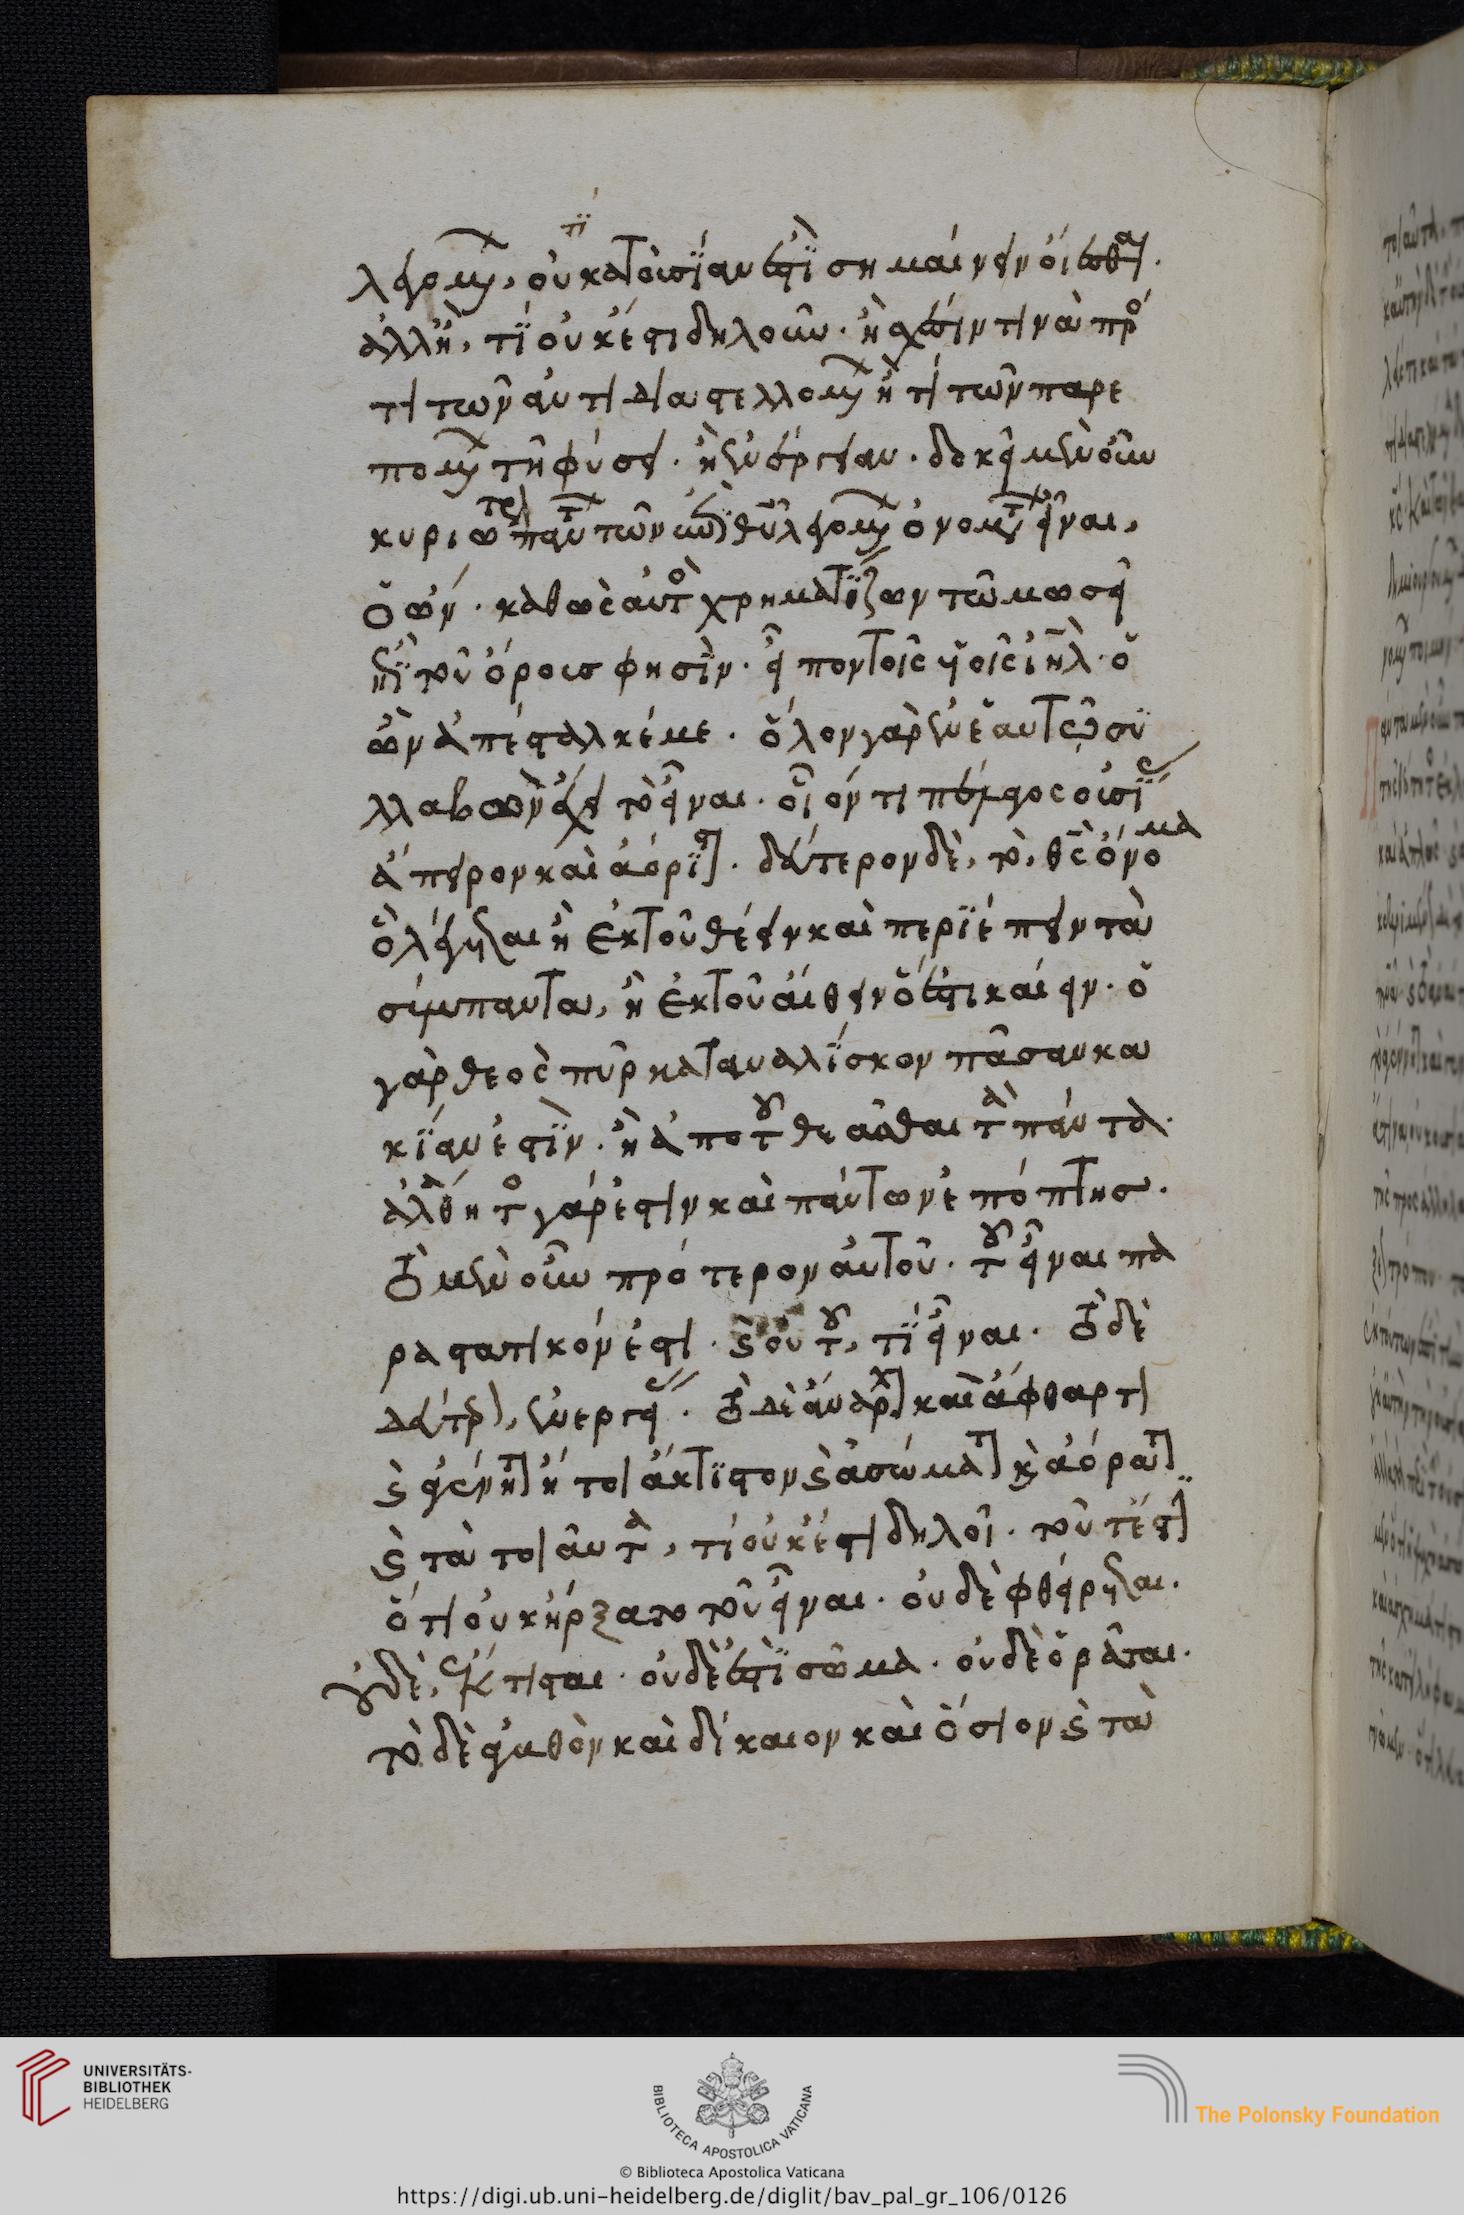 λεγομεν, οὐ κατ οὐσίαν τί ἐστι σημαίνειν οἴεσθαι.
ἀλλ ἢ, τί οὐκ ἔστι δηλοῦν. ἢ σχέσιν τινὰ πρό
τι τῶν ἀντιδιαστελλομένων ἢ τί τῶν παρε
πομένων τῆ φύσει. ἢ ἐνέργειαν. δοκεῖ μὲν οὖν
κυριώτερον πάντων τῶν ἐπὶ θεοῦ λεγομένων ὀνομάτων εἶναι,
ὁ ὤν. καθὼς αὐτὸς χρηματίζων τῶ μωσεῖ
ἐπὶ τοῦ ὄρους φησὶν. εἶπον τοῖς υἱοῖς ἰηλ. ὁ
ὢν ἀπέσταλκέ με. ὅλον γὰρ ἐν ἑαυτῶ συ
λλαβὼν ἔχει τὸ εἶναι. οἷόν τι πέλαγος οὐσίας
ἄπειρον καὶ ἀόριστον. δεύτερον δὲ, τὸ, θς ὄνομα
ὃ λέγεται ἢ ἐκ τοῦ θέειν καὶ περιέπειν τὰ
σύμπαντα, ἢ ἐκ τοῦ αἴθειν ὅ ἐστι καίειν. ὁ
γὰρ θεὸς πῦρ καταναλίσκον πᾶσαν κα
κίαν ἐστὶν. ἢ ἀπὸ τοῦ θεᾶσθαι τὰ πάντα.
ἀλάθητος γάρ ἐστιν καὶ πάντων ἐπόπτης.
τὸ μὲν οὖν πρότερον αὐτοῦ. τοῦ εἶναι πα
ραστατικόν ἐστι. καὶ οὐ τοῦ, τί εἶναι. τὸ δὲ
δεύτερον, ἐνεργείας. τὸ δὲ ἄναρχον καὶ ἄφθαρτον
καὶ ἀγένητον ἤτοι ἄκτιστον καὶ ἀσώματον καὶ ἀόρατον
καὶ τὰ τοιαῦτα, τί οὐκ ἔστι δηλοῖ. τοῦτέστιν
ὅτι οὐκ ἤρξατο τοῦ εἶναι. οὐδὲ φθείρεται.
οὐδὲ, ἔκτισται. οὐδὲ ἐστὶ σῶμα. οὐδὲ ὁρᾶται.
τὸ δὲ ἀγαθὸν καὶ δίκαιον καὶ ὅσιον καὶ τὰ
UNIVERSITÄTS-
BIBLIOTHEK
HEIDELBERG
BIBLIOTECA APOSTOLICA VATICANA
The Polonsky Foundation
© Biblioteca Apostolica Vaticana
https://digi.ub.uni-heidelberg.de/diglit/bav_pal_gr_106/0126